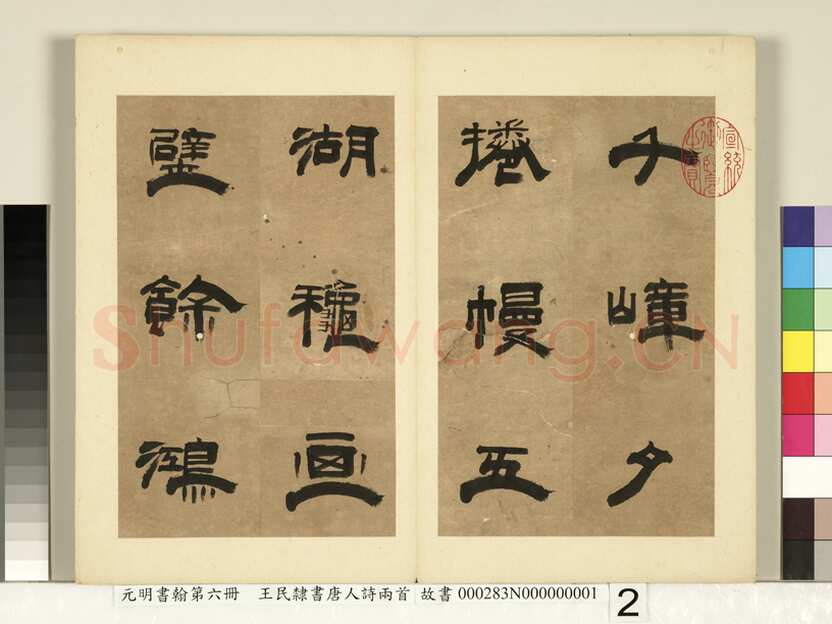 千嶂夕
捲幔五
湖穐画
壁餘鴻
宣統御覽之寶
Shufawang.CN
元明書翰第六冊 王民隸書唐人詩兩首 故書 000283N000000001 2